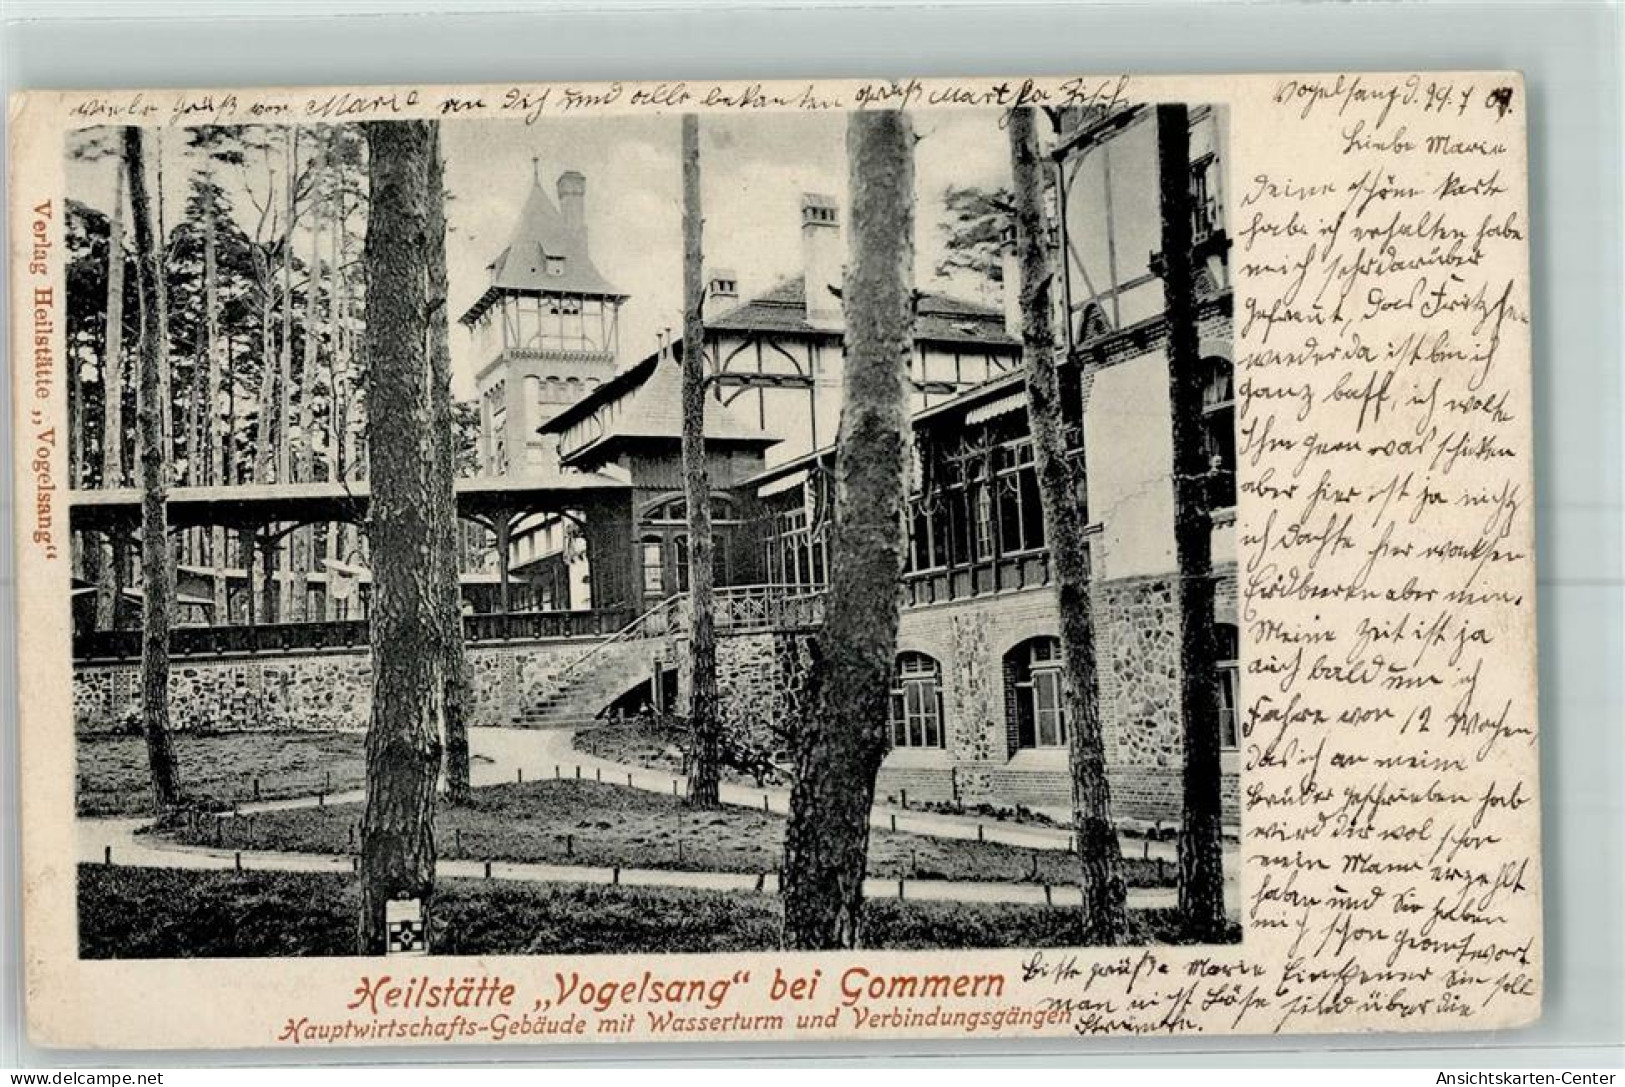 Viele Grüß von Marie an Dich und alle bekanten Gruß Martha
Vogelsang d.
Liebe Marie
Deine schöne Karte
habe ich erhalten habe
mich sehr darüber
gefreut, das Fritzchen
wieder da ist bin ich
ganz baff, ich wolte
Ihm gern was schicken
aber hier ist ja nichts
ich dachte hier wachsen
Erdbeeren aber nein.
Meine Zeit ist ja
auch bald um ich
Fahre von 12 Wochen,
das ich an meine
Brüder geschrieben hab
wird dir wol schon
mein Mann erzehlt
haben und Sie haben
mich schon geantwort
Bitte grüße Marie Sie soll
man nicht Böse sind über die
Strümpfe.
Verlag Heilstätte „Vogelsang“
Heilstätte „Vogelsang“ bei Gommern
Hauptwirtschafts-Gebäude mit Wasserturm und Verbindungsgängen
delcampe.net
Ansichtskarten-Center